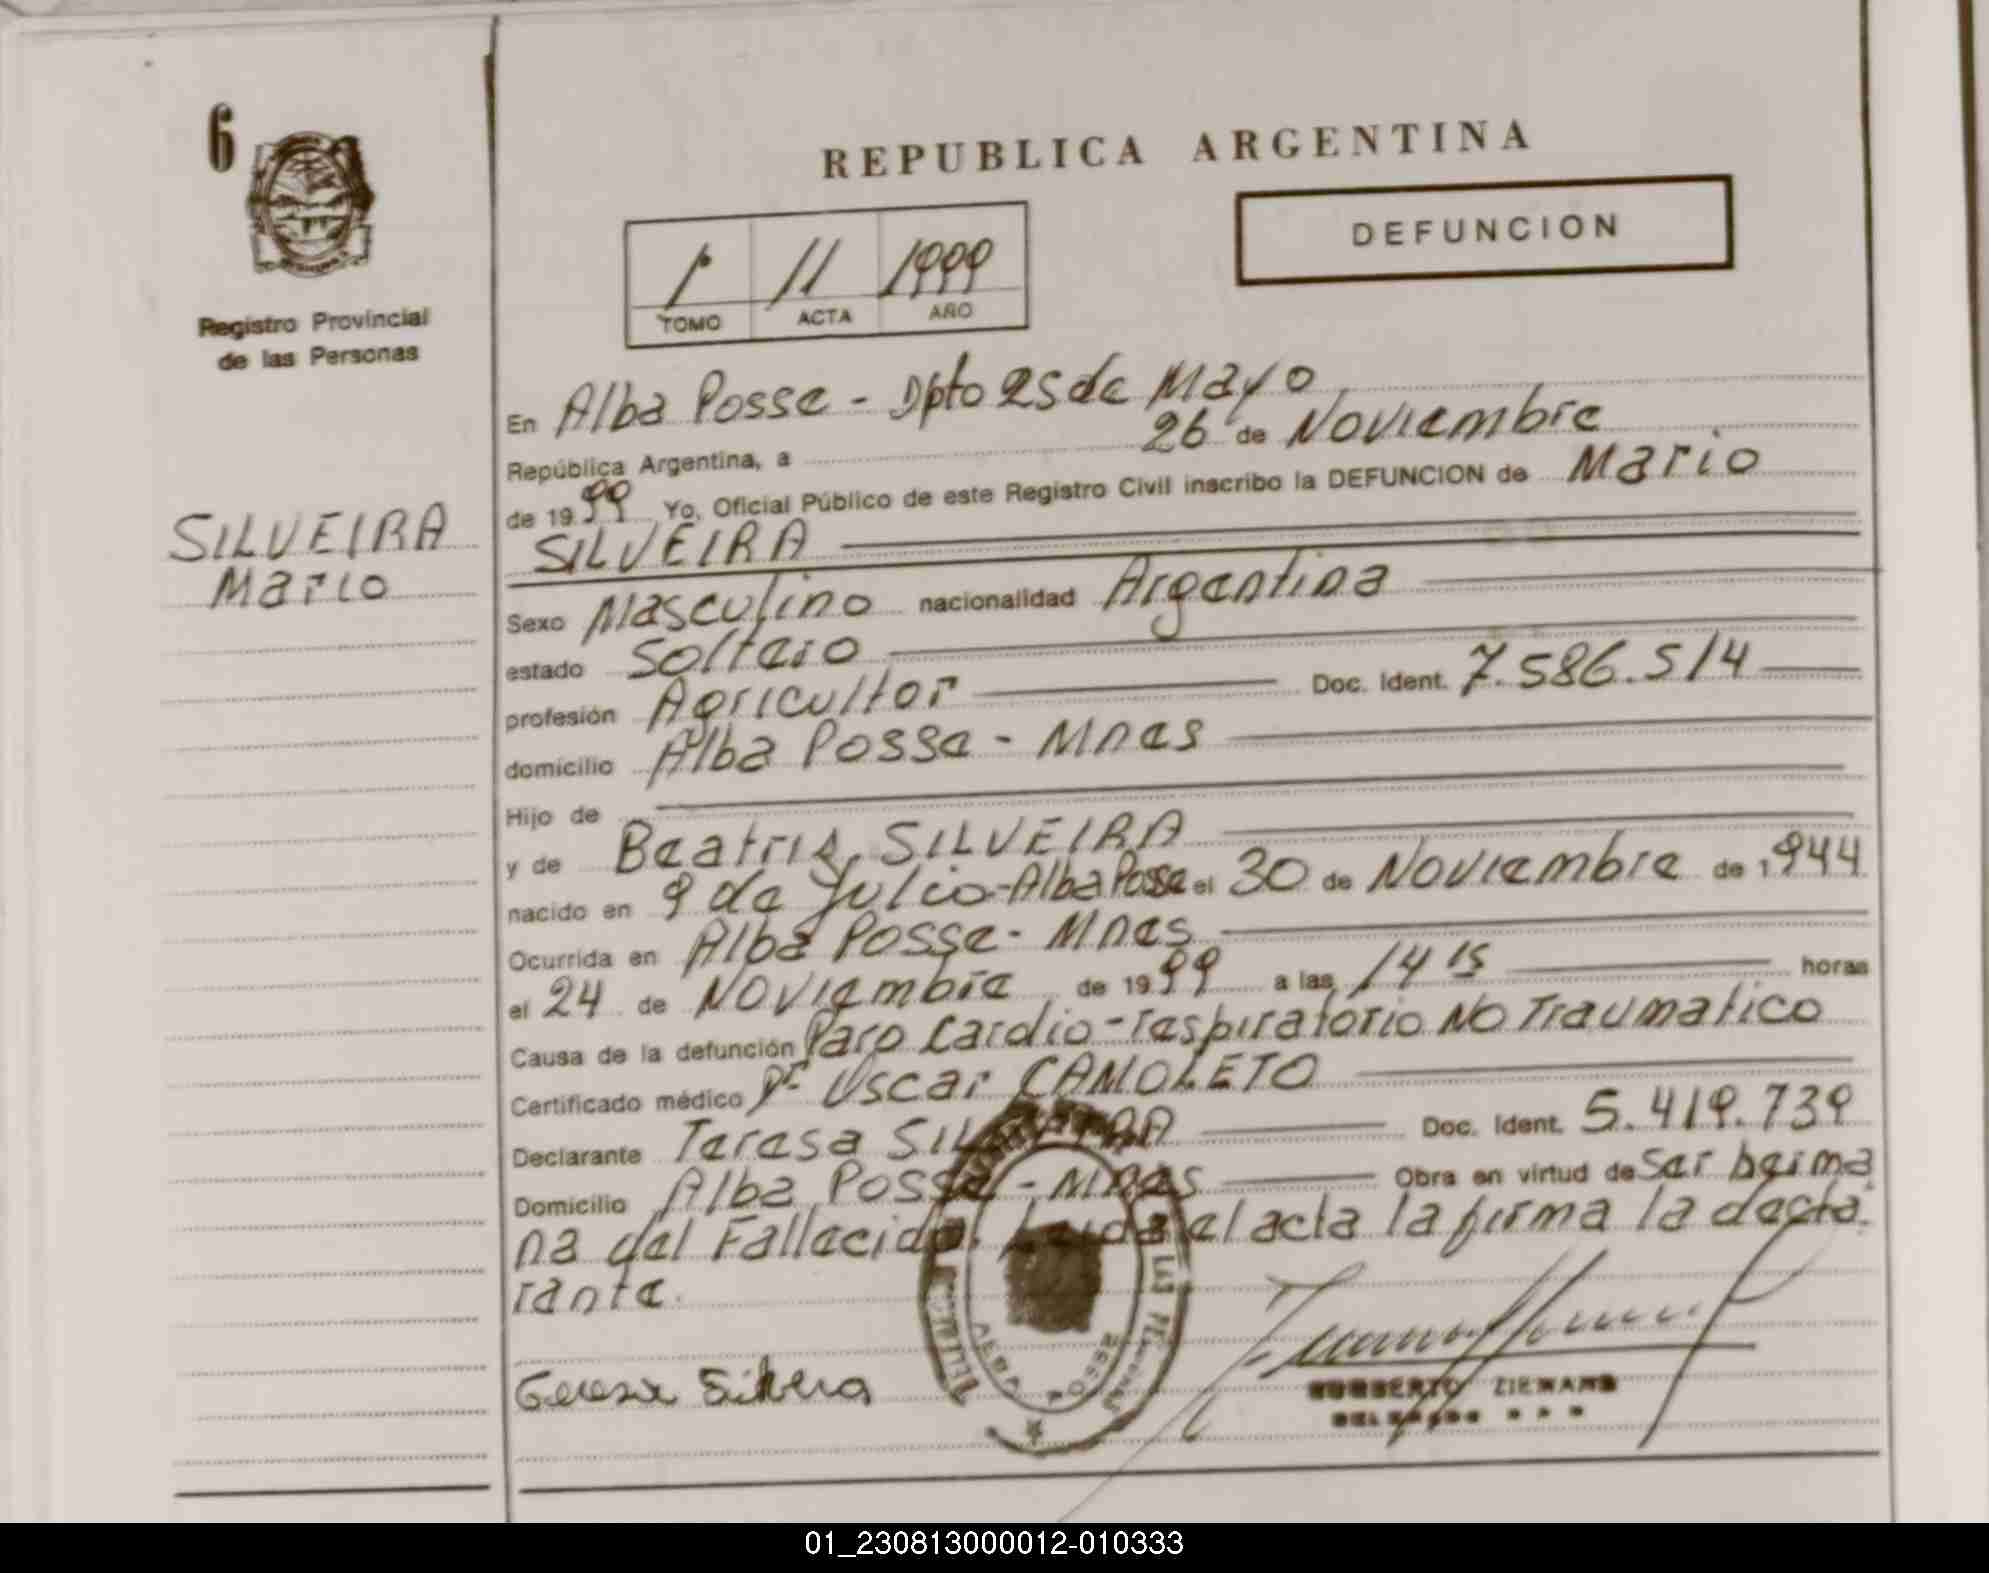 6
Registro Provincial
de las Personas
SILVEIRA
Mario
REPUBLICA ARGENTINA
DEFUNCION
1º 11 1999
TOMO ACTA AÑO
En Alba Posse - Dpto 25 de Mayo
República Argentina, a 26 de Noviembre
de 1999 Yo, Oficial Público de este Registro Civil inscribo la DEFUNCION de Mario
SILVEIRA
Sexo Masculino nacionalidad Argentina
estado Soltero
profesión Agricultor Doc. Ident. 7.586.514
domicilio Alba Posse - Mnes
Hijo de
y de Beatris SILVEIRA
nacido en 9 de Julio - Alba Posse el 30 de Noviembre de 1944
Ocurrida en Alba Posse - Mnes
el 24 de Noviembre de 1999 a las 14 15 horas
Causa de la defunción Paro Cardio-respiratorio No Traumatico
Certificado médico Dr Oscar CAMOLETO
Declarante Teresa SILVEIRA Doc. Ident. 5.419.739
Domicilio Alba Posse - Mnes Obra en virtud de ser herma
na del Fallecido. Leida el acta la firma la decla-
rante.
Teresa Silvera
NORBERTO ZIEMANN
LAS PERSONAS
ALBA POSSE
01_230813000012-010333